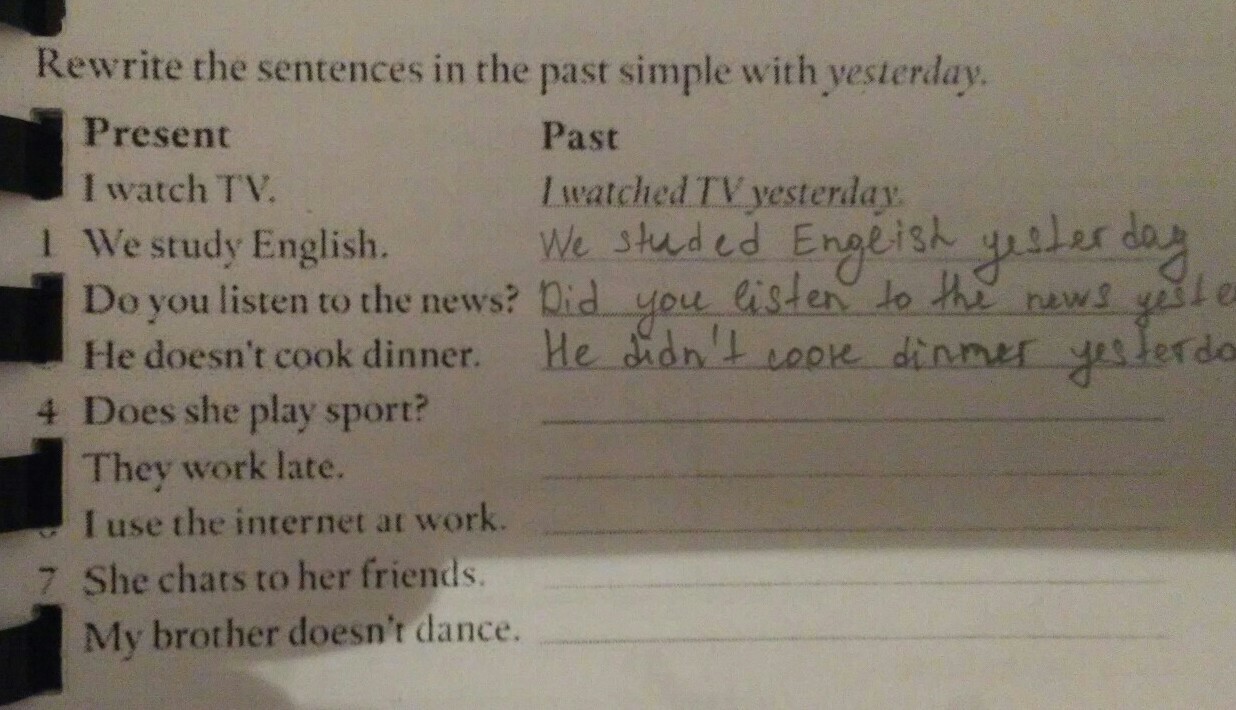 Rewrite the sentences in the past simple with yesterday.
Present Past
I watch TV. I watched TV yesterday.
1 We study English. We studed English yesterday
Do you listen to the news? Did you listen to the news yeste
He doesn't cook dinner. He didn't cook dinmer yesterda
4 Does she play sport?
They work late.
I use the internet at work.
7 She chats to her friends.
My brother doesn't dance.